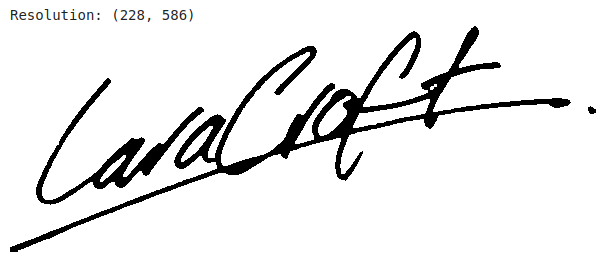 Resolution: (228, 586)
Lara Croft.